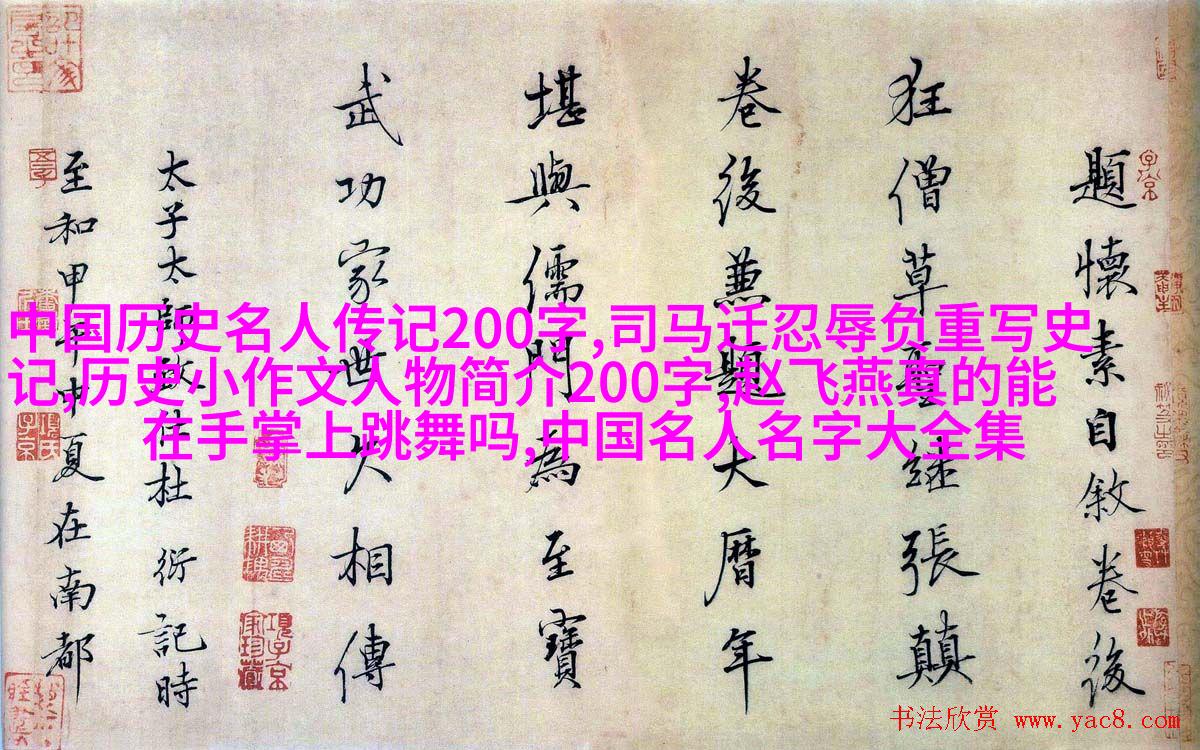 題懷素自敘卷後
狂僧草聖継張顛
卷後兼題大曆年
堪與儒門為至寶
武功家世久相傳
太子太師致仕杜 衍記時
至和甲午中夏在南都
中国历史名人传记200字,司马迁忍辱负重写史
记,历史小作文人物简介200字,赵飞燕真的能
在手掌上跳舞吗,中国名人名字大全集
項子京家珍藏
书法欣赏 www.yac8.com